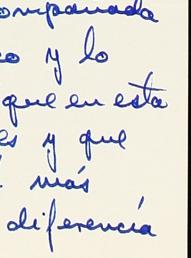 ompanada
co y lo
que en esta
es y que
más
diferencia